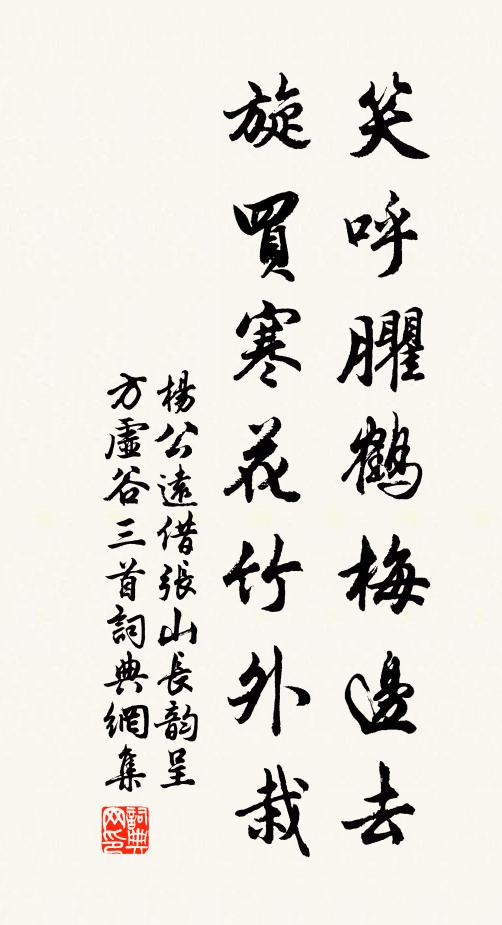 笑呼臞鶴梅邊去
旋買寒花竹外栽
楊公遠借張山長韵呈
方虛谷三首詞典網集
詞典网印